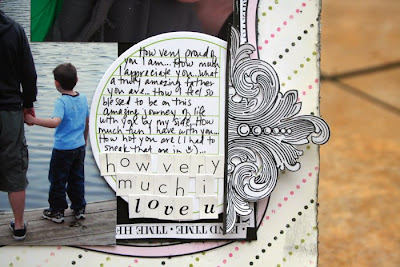 How very proud o
you I am... How much
I appreciate you.. what
a truly amazing father
you are... How I feel so
blessed to be on this
amazing journey of life
with you by my side, How
much fun I have with you...
How hot you are (I had to
sneak that one in ☺)...
how very
much i
love u
TIME • TIME THE